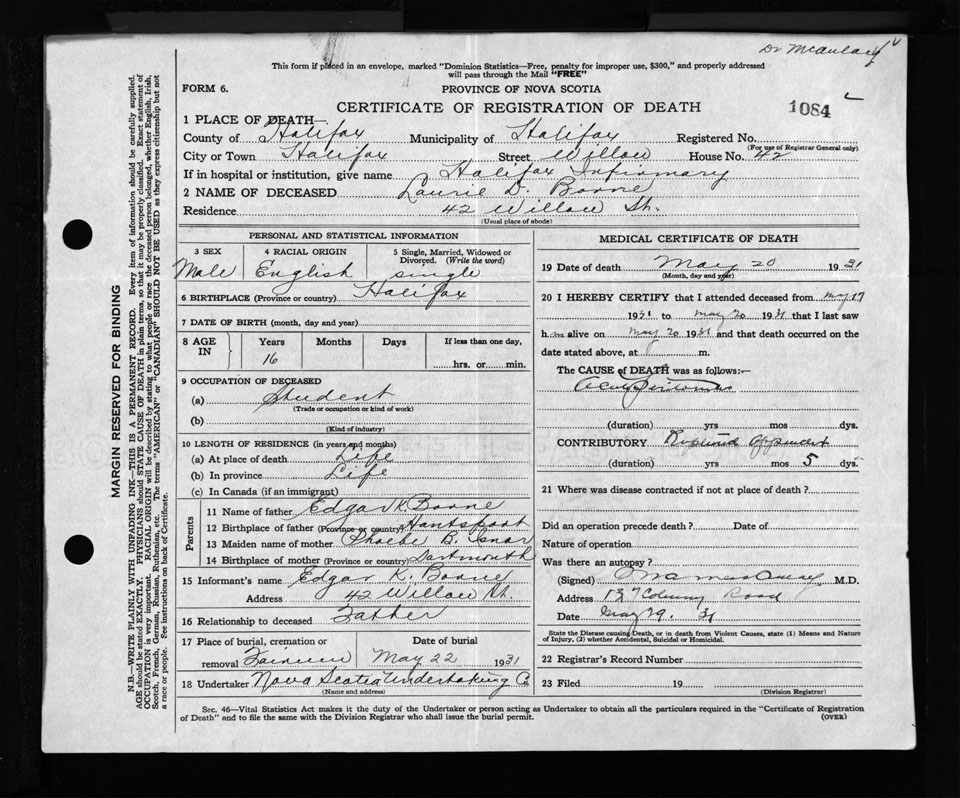 Dr McAulay
This form if placed in an envelope, marked "Dominion Statistics—Free, penalty for improper use, $300," and properly addressed
will pass through the Mail "FREE"
FORM 6.
PROVINCE OF NOVA SCOTIA
CERTIFICATE OF REGISTRATION OF DEATH
1084
1 PLACE OF DEATH—
County of Halifax Municipality of Halifax Registered No.
(For use of Registrar General only)
City or Town Halifax Street Willow House No. 42
If in hospital or institution, give name Halifax Infirmary
2 NAME OF DECEASED Laurie D. Boone
Residence 42 Willow St.
(Usual place of abode)
PERSONAL AND STATISTICAL INFORMATION
3 SEX
Male
4 RACIAL ORIGIN
English
5 Single, Married, Widowed or
Divorced. (Write the word)
single
6 BIRTHPLACE (Province or country) Halifax
7 DATE OF BIRTH (month, day and year)
8 AGE IN
Years Months Days If less than one day,
16 hrs. or min.
9 OCCUPATION OF DECEASED
(a) Student
(Trade or occupation or kind of work)
(b)
(Kind of industry)
10 LENGTH OF RESIDENCE (in years and months)
(a) At place of death Life
(b) In province Life
(c) In Canada (if an immigrant)
Parents
11 Name of father Edgar K. Boone
12 Birthplace of father (Province or country) Hantsport
13 Maiden name of mother Phoebe B. Isnor
14 Birthplace of mother (Province or country) Dartmouth
15 Informant's name Edgar K. Boone
Address 42 Willow St.
16 Relationship to deceased Father
17 Place of burial, cremation or Date of burial
removal May 22 1931
18 Undertaker Nova Scotia Undertaking Co
(Name and address)
MEDICAL CERTIFICATE OF DEATH
19 Date of death May 20 1931
(Month, day and year)
20 I HEREBY CERTIFY that I attended deceased from May 17
1931 to May 20 1931 that I last saw
h m alive on May 20 1931 and that death occurred on the
date stated above, at m.
The CAUSE of DEATH was as follows:—
(duration) yrs mos dys.
CONTRIBUTORY Ruptured Appendix
(duration) yrs mos 5 dys.
21 Where was disease contracted if not at place of death?
Did an operation precede death? Date of
Nature of operation
Was there an autopsy?
(Signed) M.D.
Address 137 Road
Date May 29. 31
State the Disease causing Death, or in death from Violent Causes, state (1) Means and Nature
of Injury, (2) whether Accidental, Suicidal or Homicidal.
22 Registrar's Record Number
23 Filed 19
(Division Registrar)
Sec. 46—Vital Statistics Act makes it the duty of the Undertaker or person acting as Undertaker to obtain all the particulars required in the "Certificate of Registration
of Death" and to file the same with the Division Registrar who shall issue the burial permit.
(OVER)
MARGIN RESERVED FOR BINDING
N.B.—WRITE PLAINLY WITH UNFADING INK—THIS IS A PERMANENT RECORD. Every item of information should be carefully supplied.
AGE should be stated EXACTLY. PHYSICIANS should STATE CAUSE OF DEATH in plain terms, so that it may be properly classified. Exact statement of
OCCUPATION is very important. RACIAL ORIGIN will be described by stating to what people or race the deceased person belonged, whether English, Irish,
Scotch, French, German, Russian, Ruthenian, etc. The terms "AMERICAN" or "CANADIAN" SHOULD NOT BE USED as they express citizenship but not
a race or people. See instructions on back of Certificate.